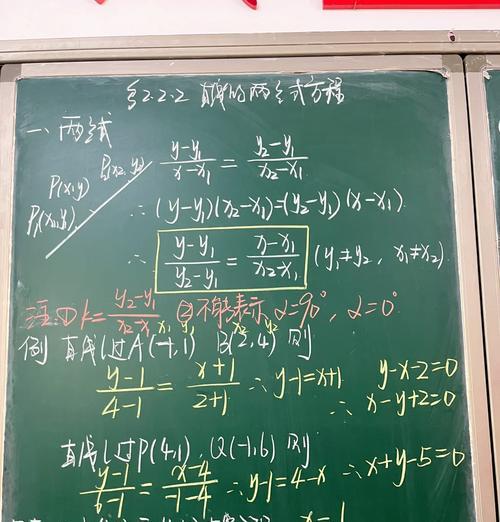 §2.2.2 直线的两点式方程
一、两点式
P₂(x₂, y₂) (y-y₁)/(x-x₁) = (y₂-y₁)/(x₂-x₁)
P(x,y)
P₁(x₁,y₁) ∴ (y-y₁)(x₂-x₁)=(y₂-y₁)(x-x₁)
∴ (y-y₁)/(y₂-y₁) = (x-x₁)/(x₂-x₁) (y₁≠y₂, x₁≠x₂)
注① k=(y₂-y₁)/(x₂-x₁) ②不能表示 α=90°, α=0°
x₁ y₁ x₂ y₂
例 直线l过A(-1,1) B(2,4) 则
(y-1)/(4-1) = (x+1)/(2+1) ∴ y-1=x+1 y-x-2=0
∴ x-y+2=0
直线l过P(4,1), Q(-1,6) 则
(y-1)/(6-1) = (x-4)/(-1-4) ∴ y-1=4-x ∴ x+y-5=0